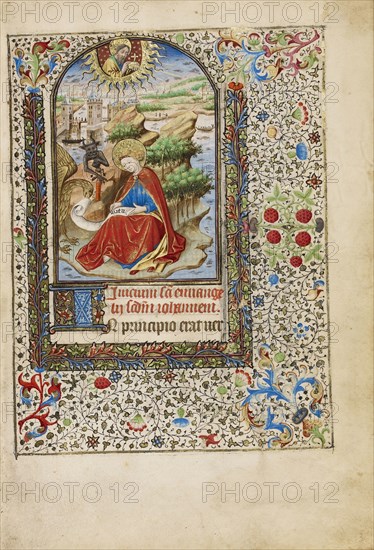 PHOTO12 PHOTO12
PHOTO12 PHOTO12
Inicium sc̄i euuange
lii scd̄m iohannem.
IN principio erat uer
PHOTO12 PHOTO12
PHOTO12 PHOTO12